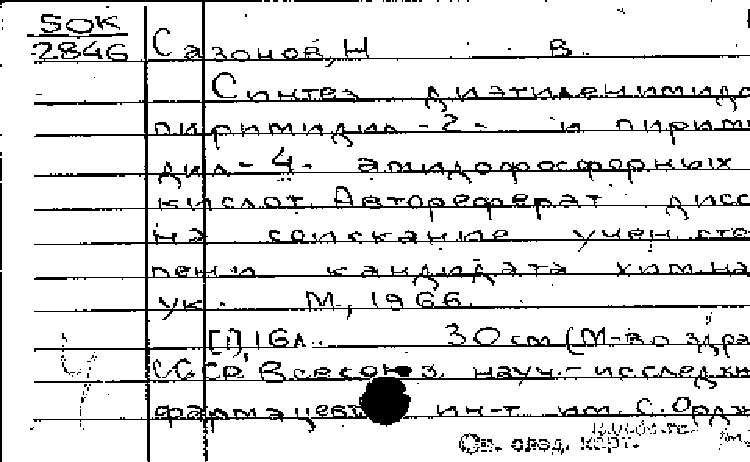 50К
2846
Сазонов, Н В.
Синтез диэтиленимидо
пиримидил-2- и пирими
дил-4- амидофосфорных
кислот. Автореферат дисс
на соискание учен. сте
пени кандидата хим. на
ук. М, 1966.
[1], 16л. 30 см (М-во здра
СССР, Всесоюз. науч.-исслед
фармацевт ин-т им. С. Ордж
Св. олод.